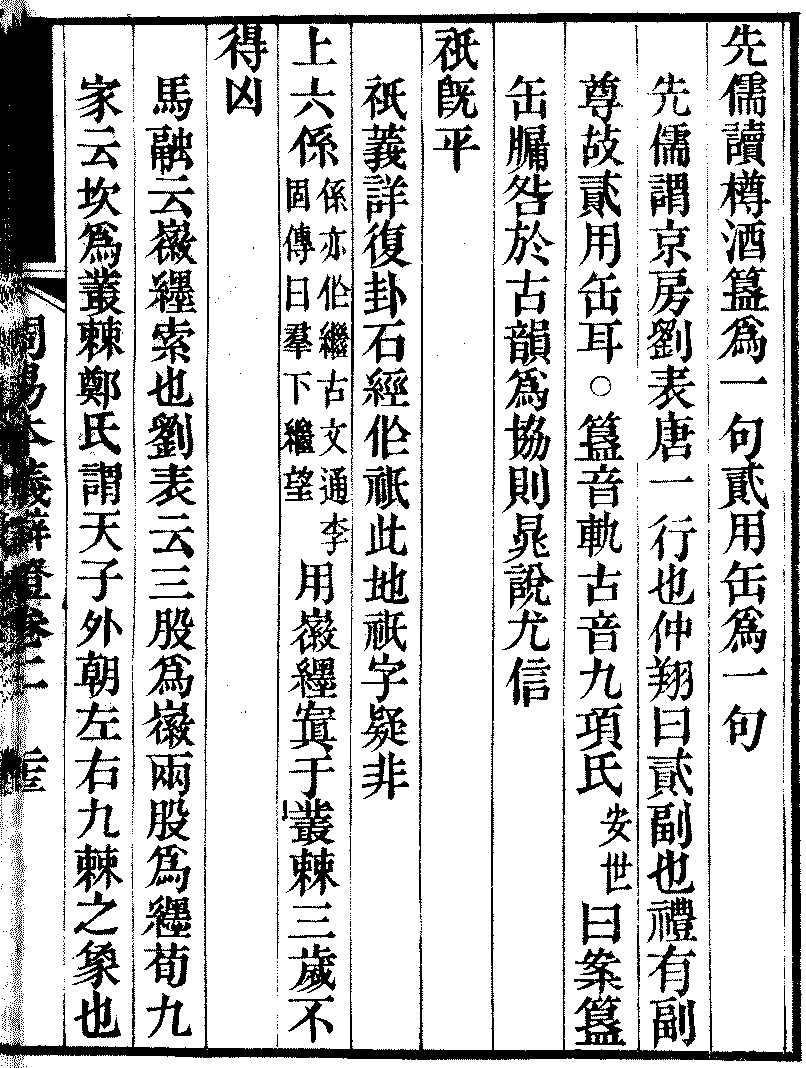 先儒讀樽酒簋爲一句貳用缶爲一句
先儒謂京房劉表唐一行也仲翔曰貳副也禮有副
尊故貳用缶耳○簋音軌古音九項氏安世曰案簋
缶牖咎於古韻爲協則晁說尤信
祇旣平
祇義詳復卦石經作祇此地祇字疑非
上六係係亦作繼古文通李固傳曰羣下繼望用徽纆寘于叢棘三歲不
得凶
馬融云徽纆索也劉表云三股爲徽兩股爲纆荀九
家云坎爲叢棘鄭氏謂天子外朝左右九棘之象也
周易本義辯證卷二